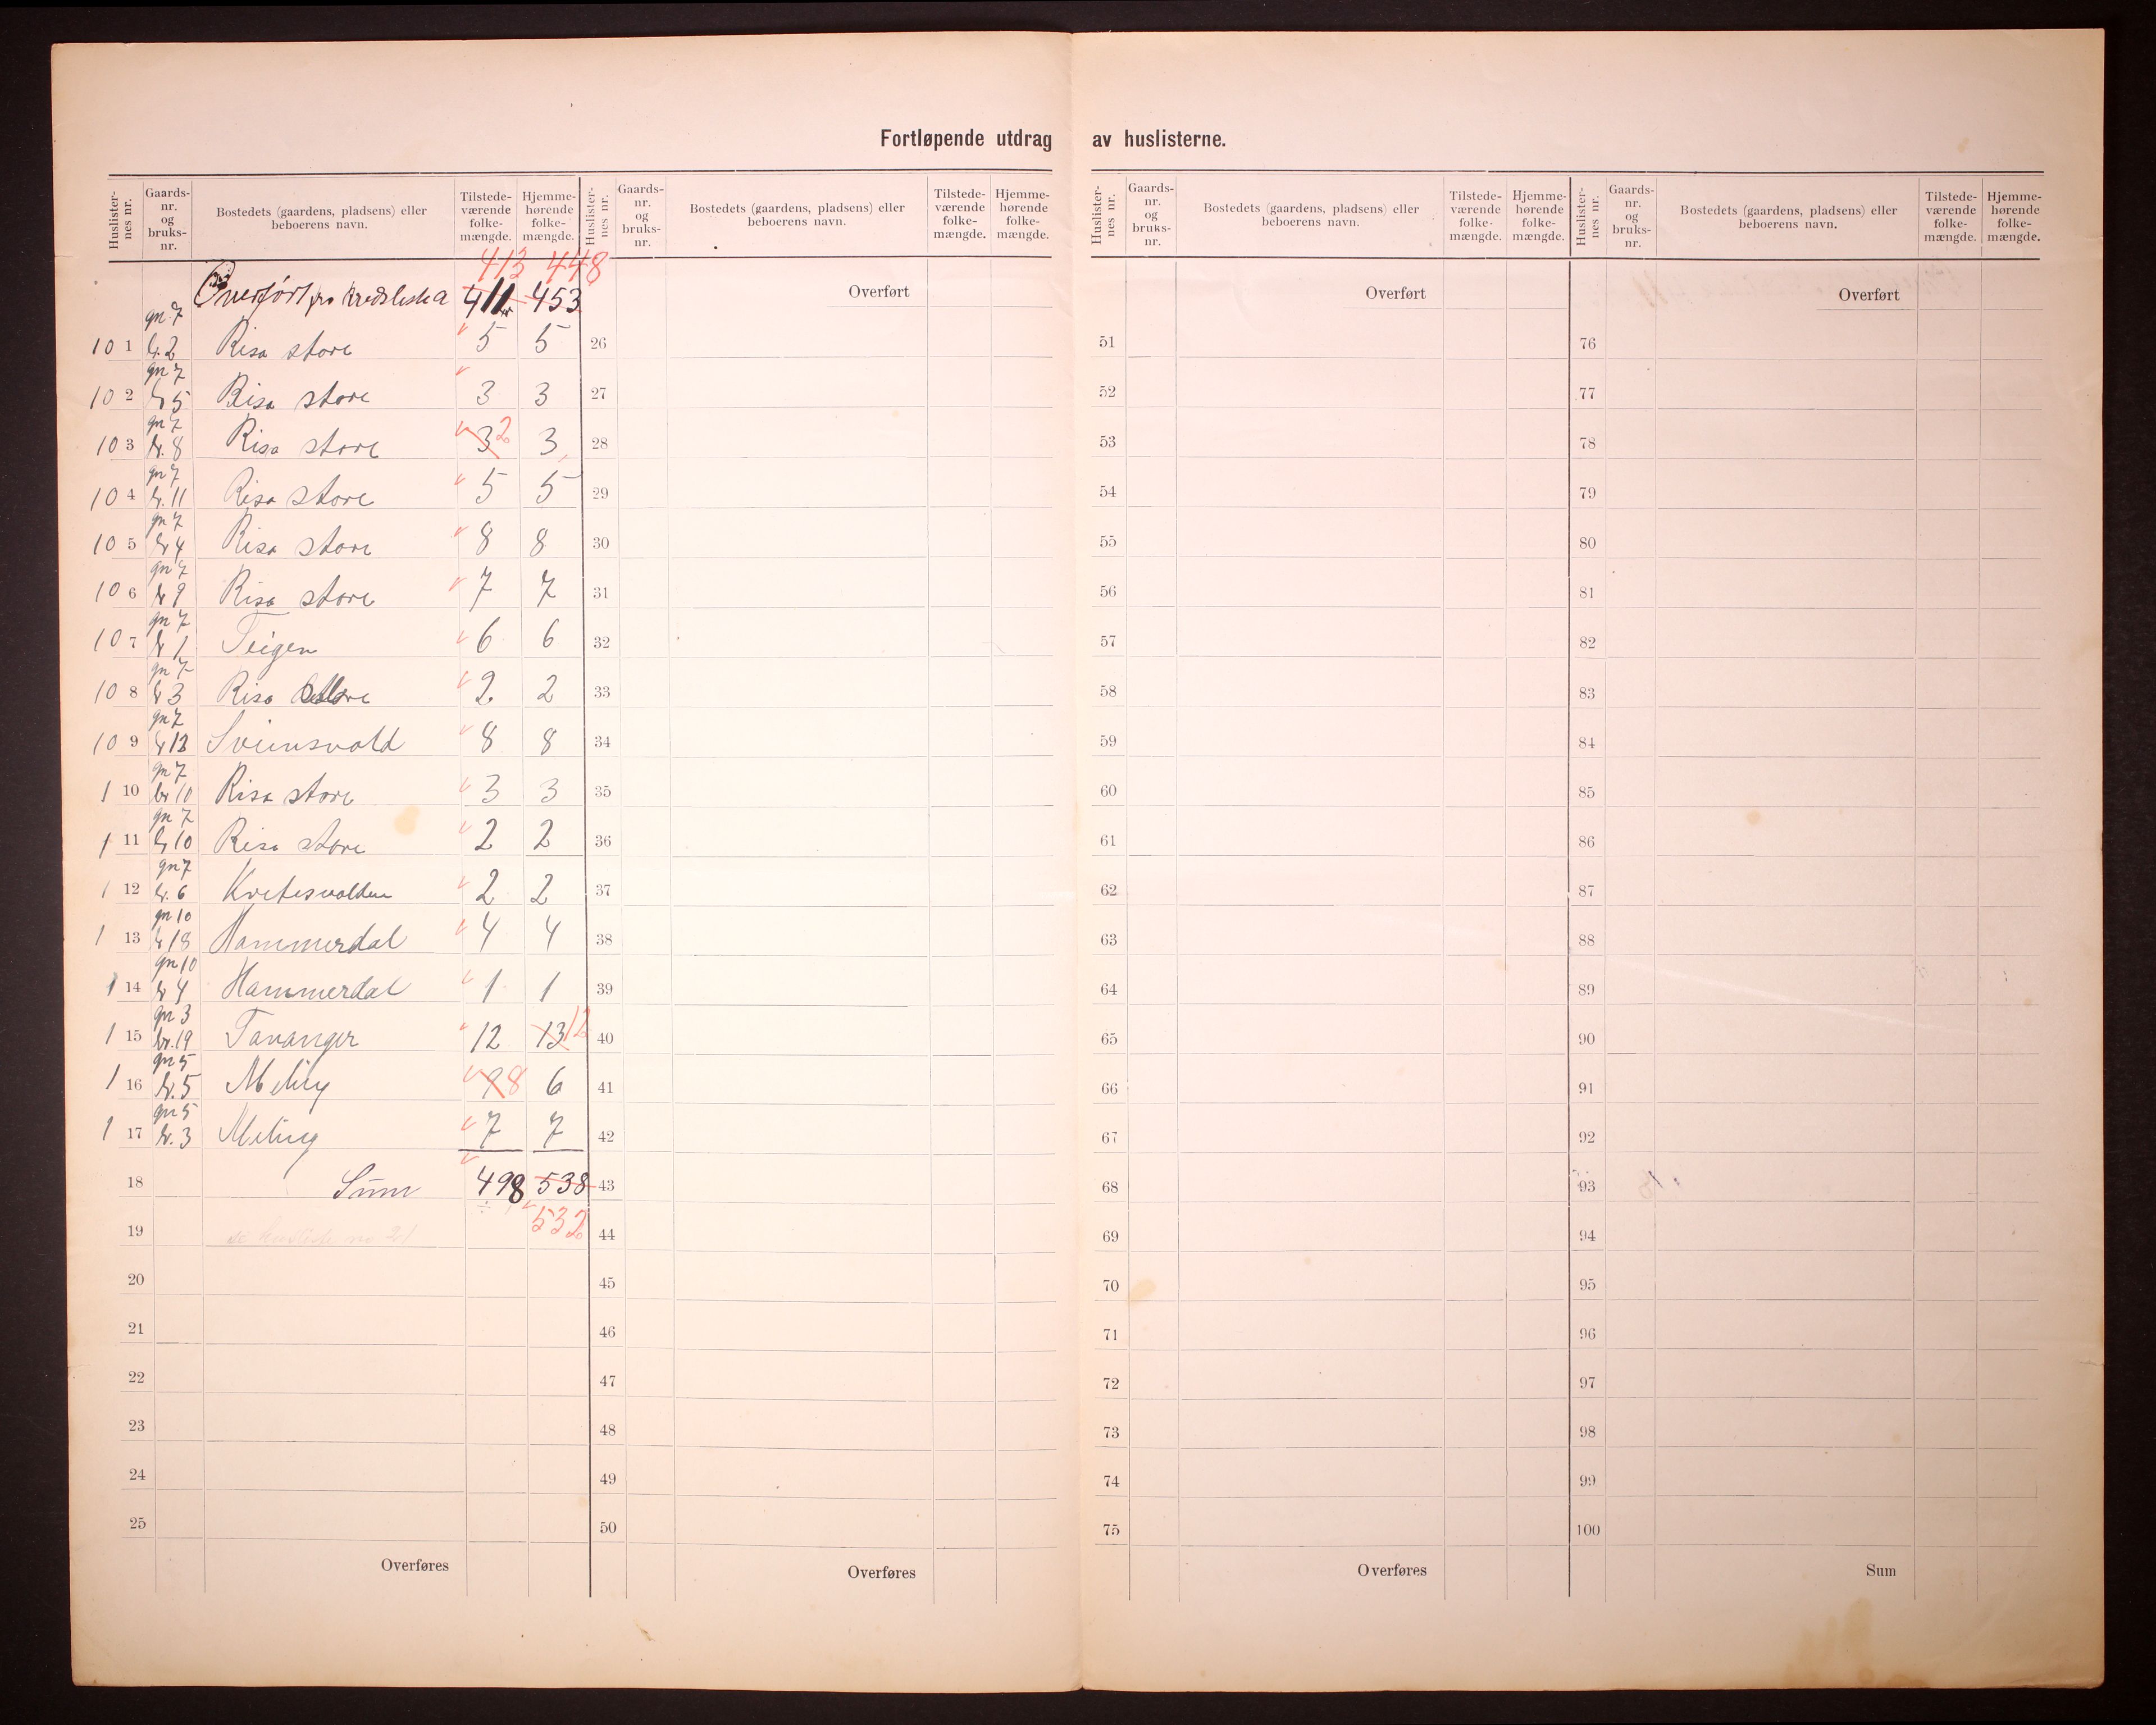 Fortløpende utdrag av huslisterne.
Huslister-nes nr. Gaards-nr. og bruks-nr. Bostedets (gaardens, pladsens) eller beboerens navn. Tilstede-værende folke-mængde. Hjemme-hørende folke-mængde.
Huslister-nes nr. Gaards-nr. og bruks-nr. Bostedets (gaardens, pladsens) eller beboerens navn. Tilstede-værende folke-mængde. Hjemme-hørende folke-mængde.
Huslister-nes nr. Gaards-nr. og bruks-nr. Bostedets (gaardens, pladsens) eller beboerens navn. Tilstede-værende folke-mængde. Hjemme-hørende folke-mængde.
Huslister-nes nr. Gaards-nr. og bruks-nr. Bostedets (gaardens, pladsens) eller beboerens navn. Tilstede-værende folke-mængde. Hjemme-hørende folke-mængde.
413 448
Overført fra Kredsliste a 411 453 Overført Overført Overført
gn 7
101 br. 2 Risa store 5 5 26 51 76
gn 7
102 br 5 Risa store 3 3 27 52 77
gn 7
103 br. 8 Risa store 3 2 3 28 53 78
gn 7
104 br. 11 Risa store 5 5 29 54 79
gn 7
105 br 4 Risa store 8 8 30 55 80
gn 7
106 br 9 Risa store 7 7 31 56 81
gn 7
107 br 1 Teigen 6 6 32 57 82
gn 7
108 br 3 Risa store 2 2 33 58 83
gn 7
109 br 12 Sveinsvold 8 8 34 59 84
gn 7
110 br 10 Risa store 3 3 35 60 85
gn 7
111 br 10 Risa store 2 2 36 61 86
gn 7
112 br. 6 2 2 37 62 87
gn 10
113 br 18 Hammerdal 4 4 38 63 88
gn 10
114 br 4 Hammerdal 1 1 39 64 89
gn 3
115 br. 19 Tananger 12 13 12 40 65 90
gn 5
116 br. 5 Meling 9 8 6 41 66 91
gn 5
117 br. 3 Meling 7 7 42 67 92
18 Sum 498 538 43 68 93
19 532 44 69 94
20 45 70 95
21 46 71 96
22 47 72 97
23 48 73 98
24 49 74 99
25 50 75 100
Overføres Overføres Overføres Sum